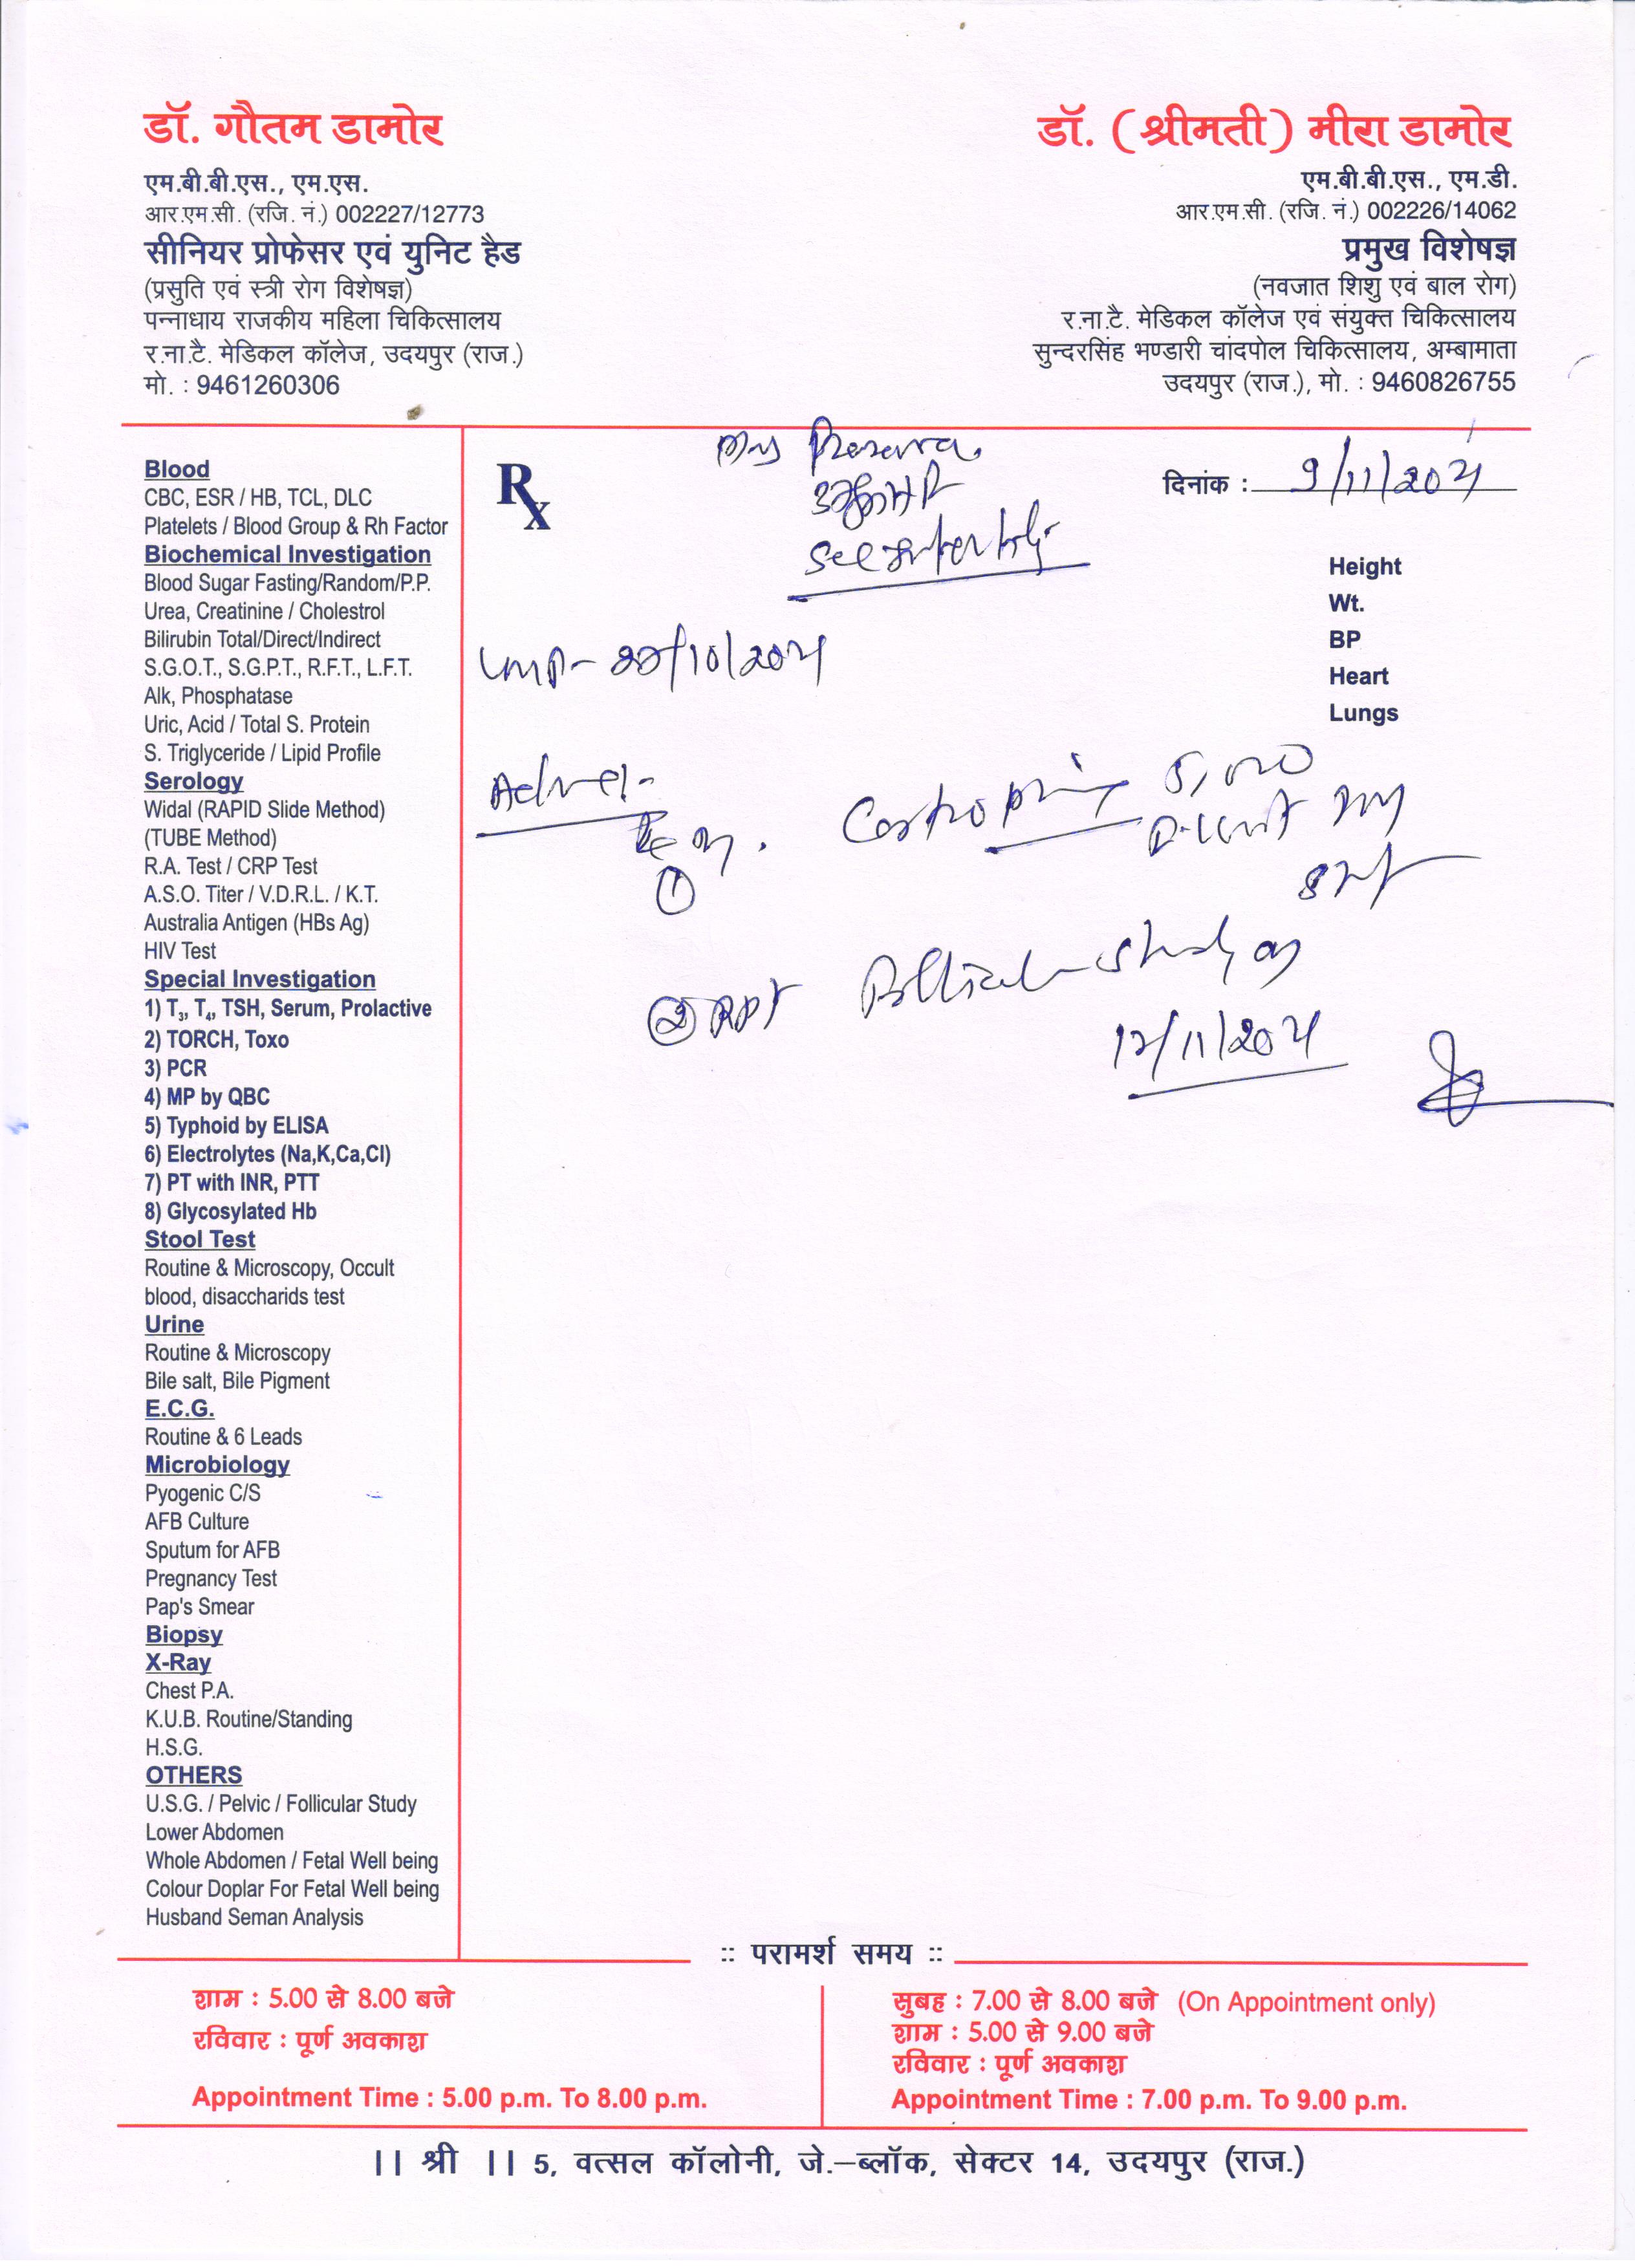 डॉ. गौतम डामोर
एम.बी.बी.एस., एम.एस.
आर.एम.सी. (रजि. नं.) 002227/12773
सीनियर प्रोफेसर एवं युनिट हैड
(प्रसुति एवं स्त्री रोग विशेषज्ञ)
पन्नाधाय राजकीय महिला चिकित्सालय
र.ना.टै. मेडिकल कॉलेज, उदयपुर (राज.)
मो. : 9461260306
डॉ. (श्रीमती) मीरा डामोर
एम.बी.बी.एस., एम.डी.
आर.एम.सी. (रजि. नं.) 002226/14062
प्रमुख विशेषज्ञ
(नवजात शिशु एवं बाल रोग)
र.ना.टै. मेडिकल कॉलेज एवं संयुक्त चिकित्सालय
सुन्दरसिंह भण्डारी चांदपोल चिकित्सालय, अम्बामाता
उदयपुर (राज.), मो. : 9460826755
Blood
CBC, ESR / HB, TCL, DLC
Platelets / Blood Group & Rh Factor
Biochemical Investigation
Blood Sugar Fasting/Random/P.P.
Urea, Creatinine / Cholestrol
Bilirubin Total/Direct/Indirect
S.G.O.T., S.G.P.T., R.F.T., L.F.T.
Alk, Phosphatase
Uric, Acid / Total S. Protein
S. Triglyceride / Lipid Profile
Serology
Widal (RAPID Slide Method)
(TUBE Method)
R.A. Test / CRP Test
A.S.O. Titer / V.D.R.L. / K.T.
Australia Antigen (HBs Ag)
HIV Test
Special Investigation
1) T₃, T₄, TSH, Serum, Prolactive
2) TORCH, Toxo
3) PCR
4) MP by QBC
5) Typhoid by ELISA
6) Electrolytes (Na,K,Ca,Cl)
7) PT with INR, PTT
8) Glycosylated Hb
Stool Test
Routine & Microscopy, Occult
blood, disaccharids test
Urine
Routine & Microscopy
Bile salt, Bile Pigment
E.C.G.
Routine & 6 Leads
Microbiology
Pyogenic C/S
AFB Culture
Sputum for AFB
Pregnancy Test
Pap's Smear
Biopsy
X-Ray
Chest P.A.
K.U.B. Routine/Standing
H.S.G.
OTHERS
U.S.G. / Pelvic / Follicular Study
Lower Abdomen
Whole Abdomen / Fetal Well being
Colour Doplar For Fetal Well being
Husband Seman Analysis
Rx
दिनांक : 9/11/2021
Height
Wt.
BP
Heart
Lungs
LMP-
①
5,000
② RPT Follicular study on
12/11/2021
:: परामर्श समय ::
शाम : 5.00 से 8.00 बजे
रविवार : पूर्ण अवकाश
Appointment Time : 5.00 p.m. To 8.00 p.m.
सुबह : 7.00 से 8.00 बजे (On Appointment only)
शाम : 5.00 से 9.00 बजे
रविवार : पूर्ण अवकाश
Appointment Time : 7.00 p.m. To 9.00 p.m.
|| श्री || 5, वत्सल कॉलोनी, जे.–ब्लॉक, सेक्टर 14, उदयपुर (राज.)